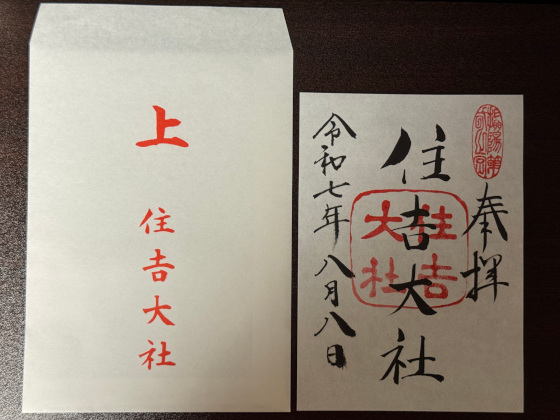 上
住吉大社
奉拝
住吉大社
住吉
大社
令和七年八月八日